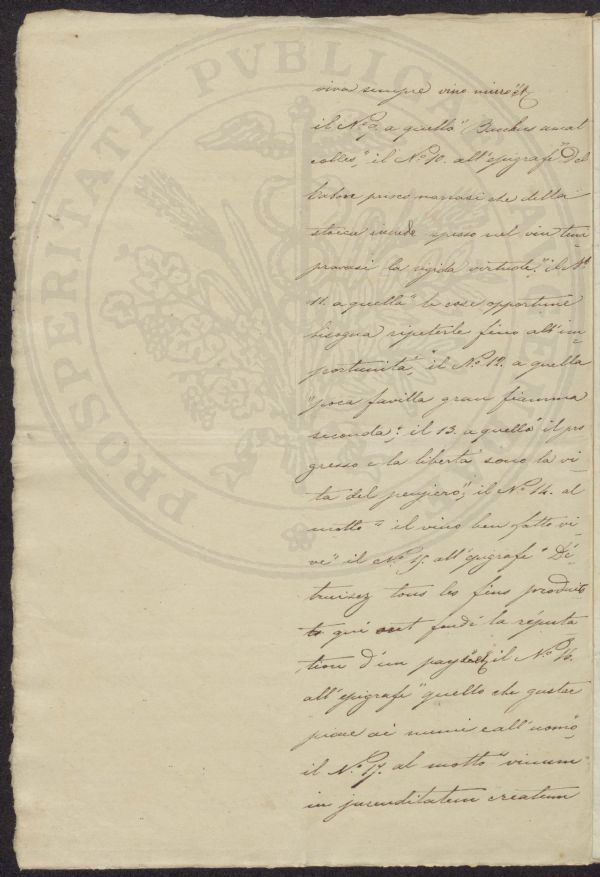 PROSPERITATI PVBLICAE AVGENDAE
viva sempre vino
il N.º 9. a quello "Bacchus amat
colles", il N.º 10. all'epigrafe "Del
buon narrasi che della
stoica spesso nel vin tem
pravasi la rigida virtude," il N.º
11. a quella "le cose opportune
bisogna ripeterle fino all'im-
portunità", il N.º 12. a quella
"poca favilla gran fiamma
seconda"; il 13. a quello "il pro
gresso e la libertà sono la vi-
ta del pensiero"; il N.º 14. al
motto "il vino ben fatto vi-
ve" il N.º 15. all'epigrafe "Dé-
truisez tous les fins produits
qui ont fondé la réputa
tion d'un pays" il N.º 16.
all'epigrafe "quello che gustar
piace ai numi e all'uomo",
il N.º 17. al motto "vinum
in jucunditatem creatum